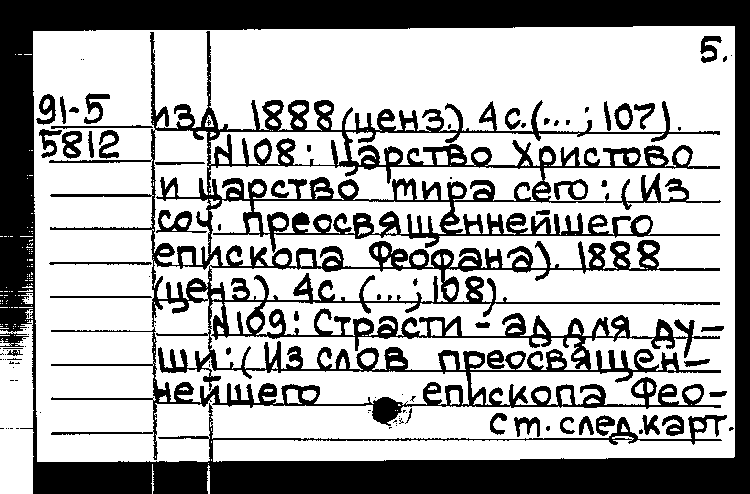 5.
91-5 изд. 1888 (ценз.). 4с. (...; 107).
5812 N108: Царство Христово
и царство мира сего: (Из
соч. преосвященнейшего
епископа Феофана). 1888
(ценз). 4с. (...; 108).
N109: Страсти - ад для ду-
ши: (Из слов преосвящен-
нейшего епископа Фео-
см. след. карт.